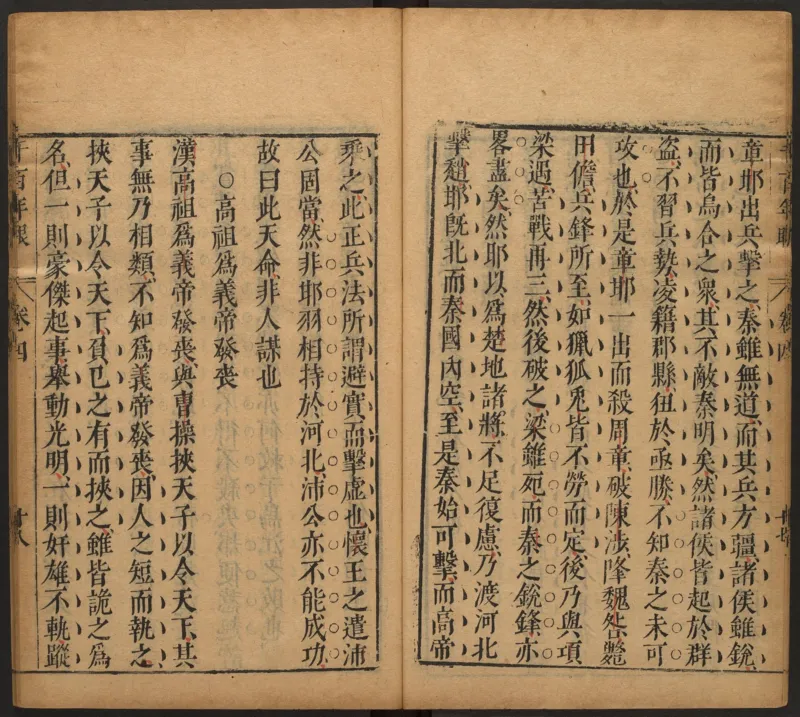 章邯出兵擊之秦雖無道而其兵方疆諸侯雖銳
而皆烏合之衆其不敵秦明矣然諸侯皆起於群
盜不習兵勢凌籍郡縣狃於亟勝不知秦之未可
攻也於是章邯一出而殺周章破陳涉降魏咎斃
田儋兵鋒所至如獵狐兎皆不勞而定後乃與項
梁遇苦戰再三然後破之梁雖死而秦之銳鋒亦
畧盡矣然邯以爲楚地諸將不足復慮乃渡河北
擊趙邯旣北而秦國內空至是秦始可擊而高帝
乘之此正兵法所謂避實而擊虛也懷王之遣沛
公固當然非邯羽相持於河北沛公亦不能成功
故曰此天命非人謀也
○高祖爲義帝發喪
漢高祖爲義帝發喪與曹操挾天子以令天下其
事無乃相類不知爲義帝發喪因人之短而執之
挾天子以令天下負已之有而挾之雖皆詭之爲
名但一則豪傑起事舉動光明一則奸雄不軌蹤
卷四
卷四